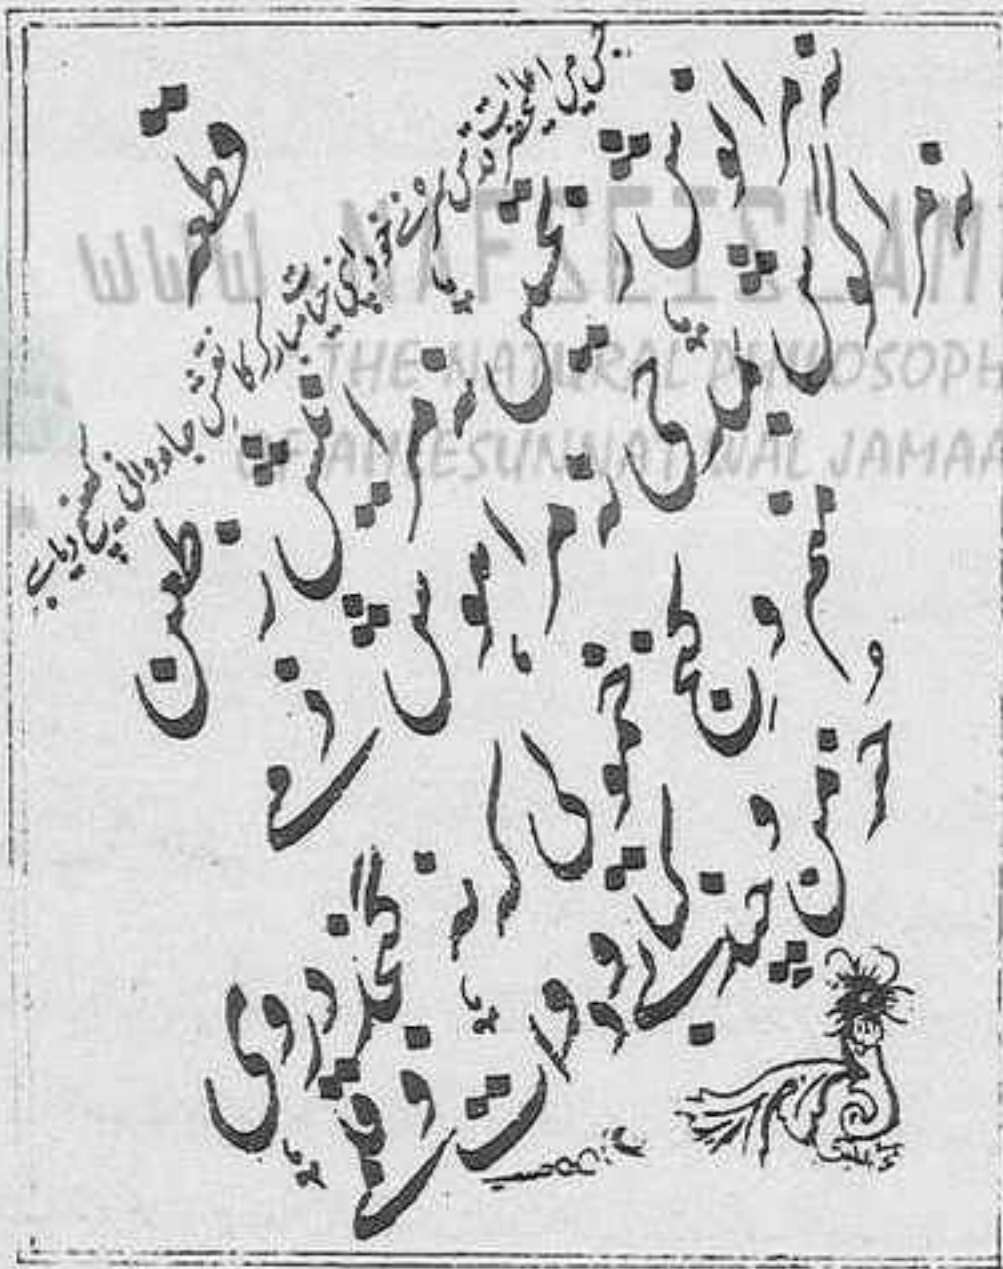 قطعہ
جس میں اعلیٰحضرت قدس سرہ نے خود اپنی حیات مبارکہ کا نقش جاودانی کھینچ دیا ہے
نہ مرا نوش ز تحسیں نہ مرا نیش ز طعن
نہ مرا گوش بمدحی نہ مرا ہوش ذمے
منم و کنج خمولی کہ نگنجد در وی
جز من و چند کتابے و دوات و قلمے
WWW NAFSEISLAM
THE NATURAL PHILOSOPH
OF AHLESUNNAT WAL JAMAA